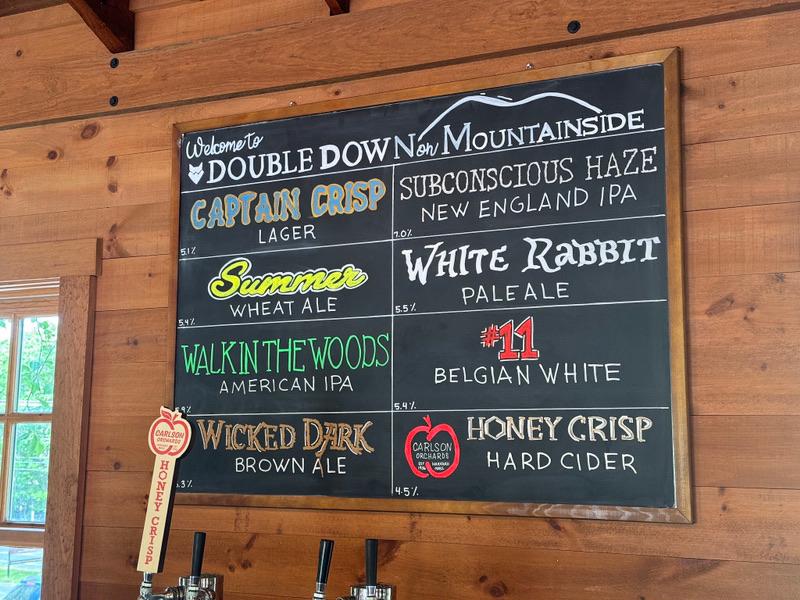 Welcome to
DOUBLE DOWN on MOUNTAINSIDE
CAPTAIN CRISP
LAGER
5.1%
SUBCONSCIOUS HAZE
NEW ENGLAND IPA
7.0%
Summer
WHEAT ALE
5.4%
WHITE RABBIT
PALE ALE
5.5%
WALK IN THE WOODS
AMERICAN IPA
#11
BELGIAN WHITE
5.4%
WICKED DARK
BROWN ALE
CARLSON
ORCHARDS
HONEY CRISP
HARD CIDER
4.5%
CARLSON
ORCHARDS
HONEY CRISP